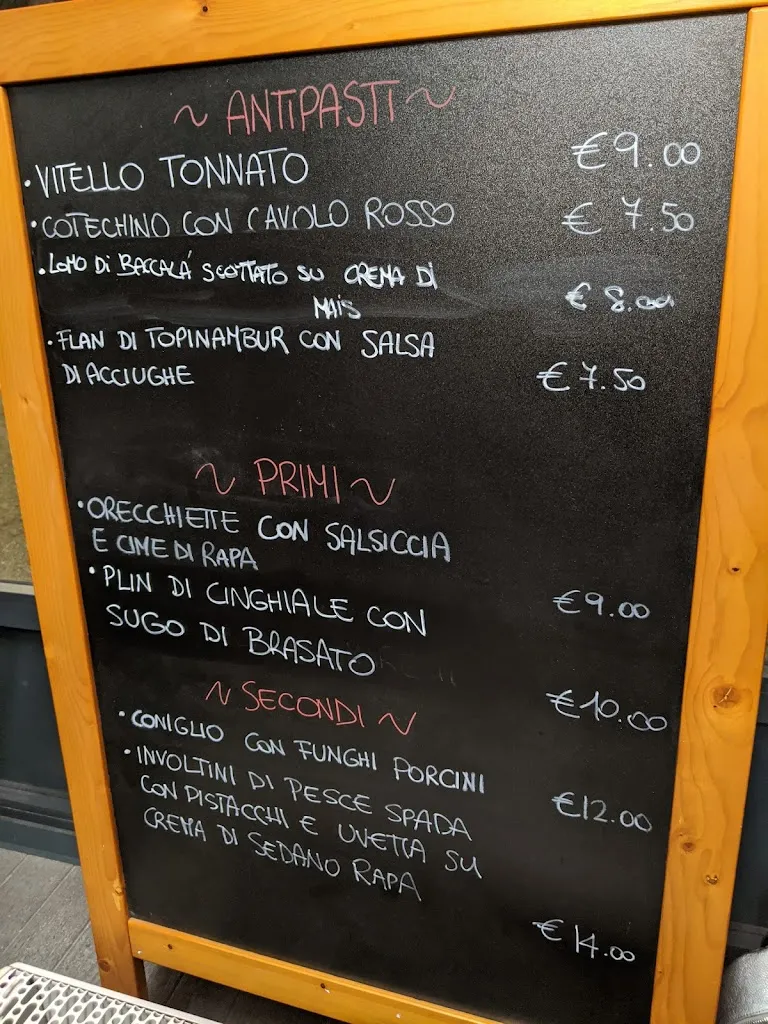 ~ ANTIPASTI ~
• VITELLO TONNATO €9.00
• COTECHINO CON CAVOLO ROSSO € 7.50
• LOMO DI BACCALÁ SCOTTATO SU CREMA DI
MAIS € 8.00
• FLAN DI TOPINAMBUR CON SALSA
DI ACCIUGHE € 7.50
~ PRIMI ~
• ORECCHIETTE CON SALSICCIA
E CIME DI RAPA €9.00
• PLIN DI CINGHIALE CON
SUGO DI BRASATO €10.00
~ SECONDI ~
• CONIGLIO CON FUNGHI PORCINI €12.00
• INVOLTINI DI PESCE SPADA
CON PISTACCHI E UVETTA SU
CREMA DI SEDANO RAPA €14.00